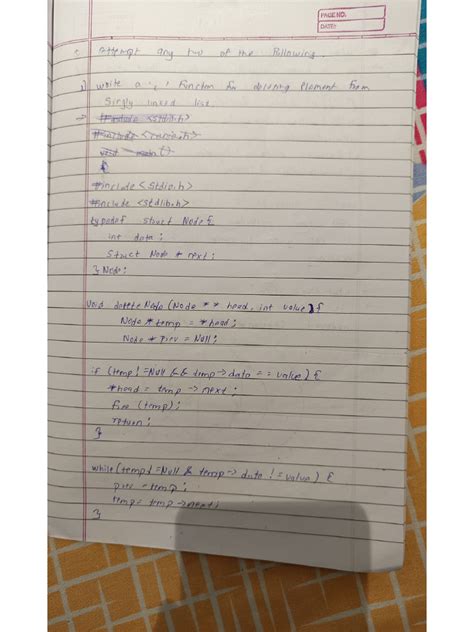 PAGE NO.
DATE:
Attempt any two of the following.
1) write a 'c' function for deleting element from
Singly linked list.
#include <stdio.h>
#include <conio.h>
void main()
{
#include <stdio.h>
#include <stdlib.h>
typedef struct Node {
int data;
Struct Node * next;
} Node;
void delete Node (Node ** head, int value) {
Node * temp = * head;
Node * prev = Null;
if (temp! = Null && temp -> data == value) {
*head = temp -> next;
free (temp);
return;
}
while (temp! = Null & temp -> data ! = value) {
prev = temp;
temp = temp -> next;
}